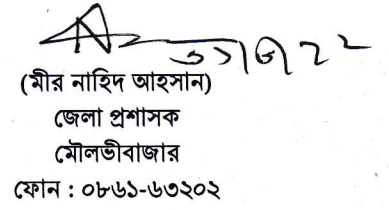 (মীর নাহিদ আহসান)
জেলা প্রশাসক
মৌলভীবাজার
ফোন : ০৮৬১-৬৩২০২